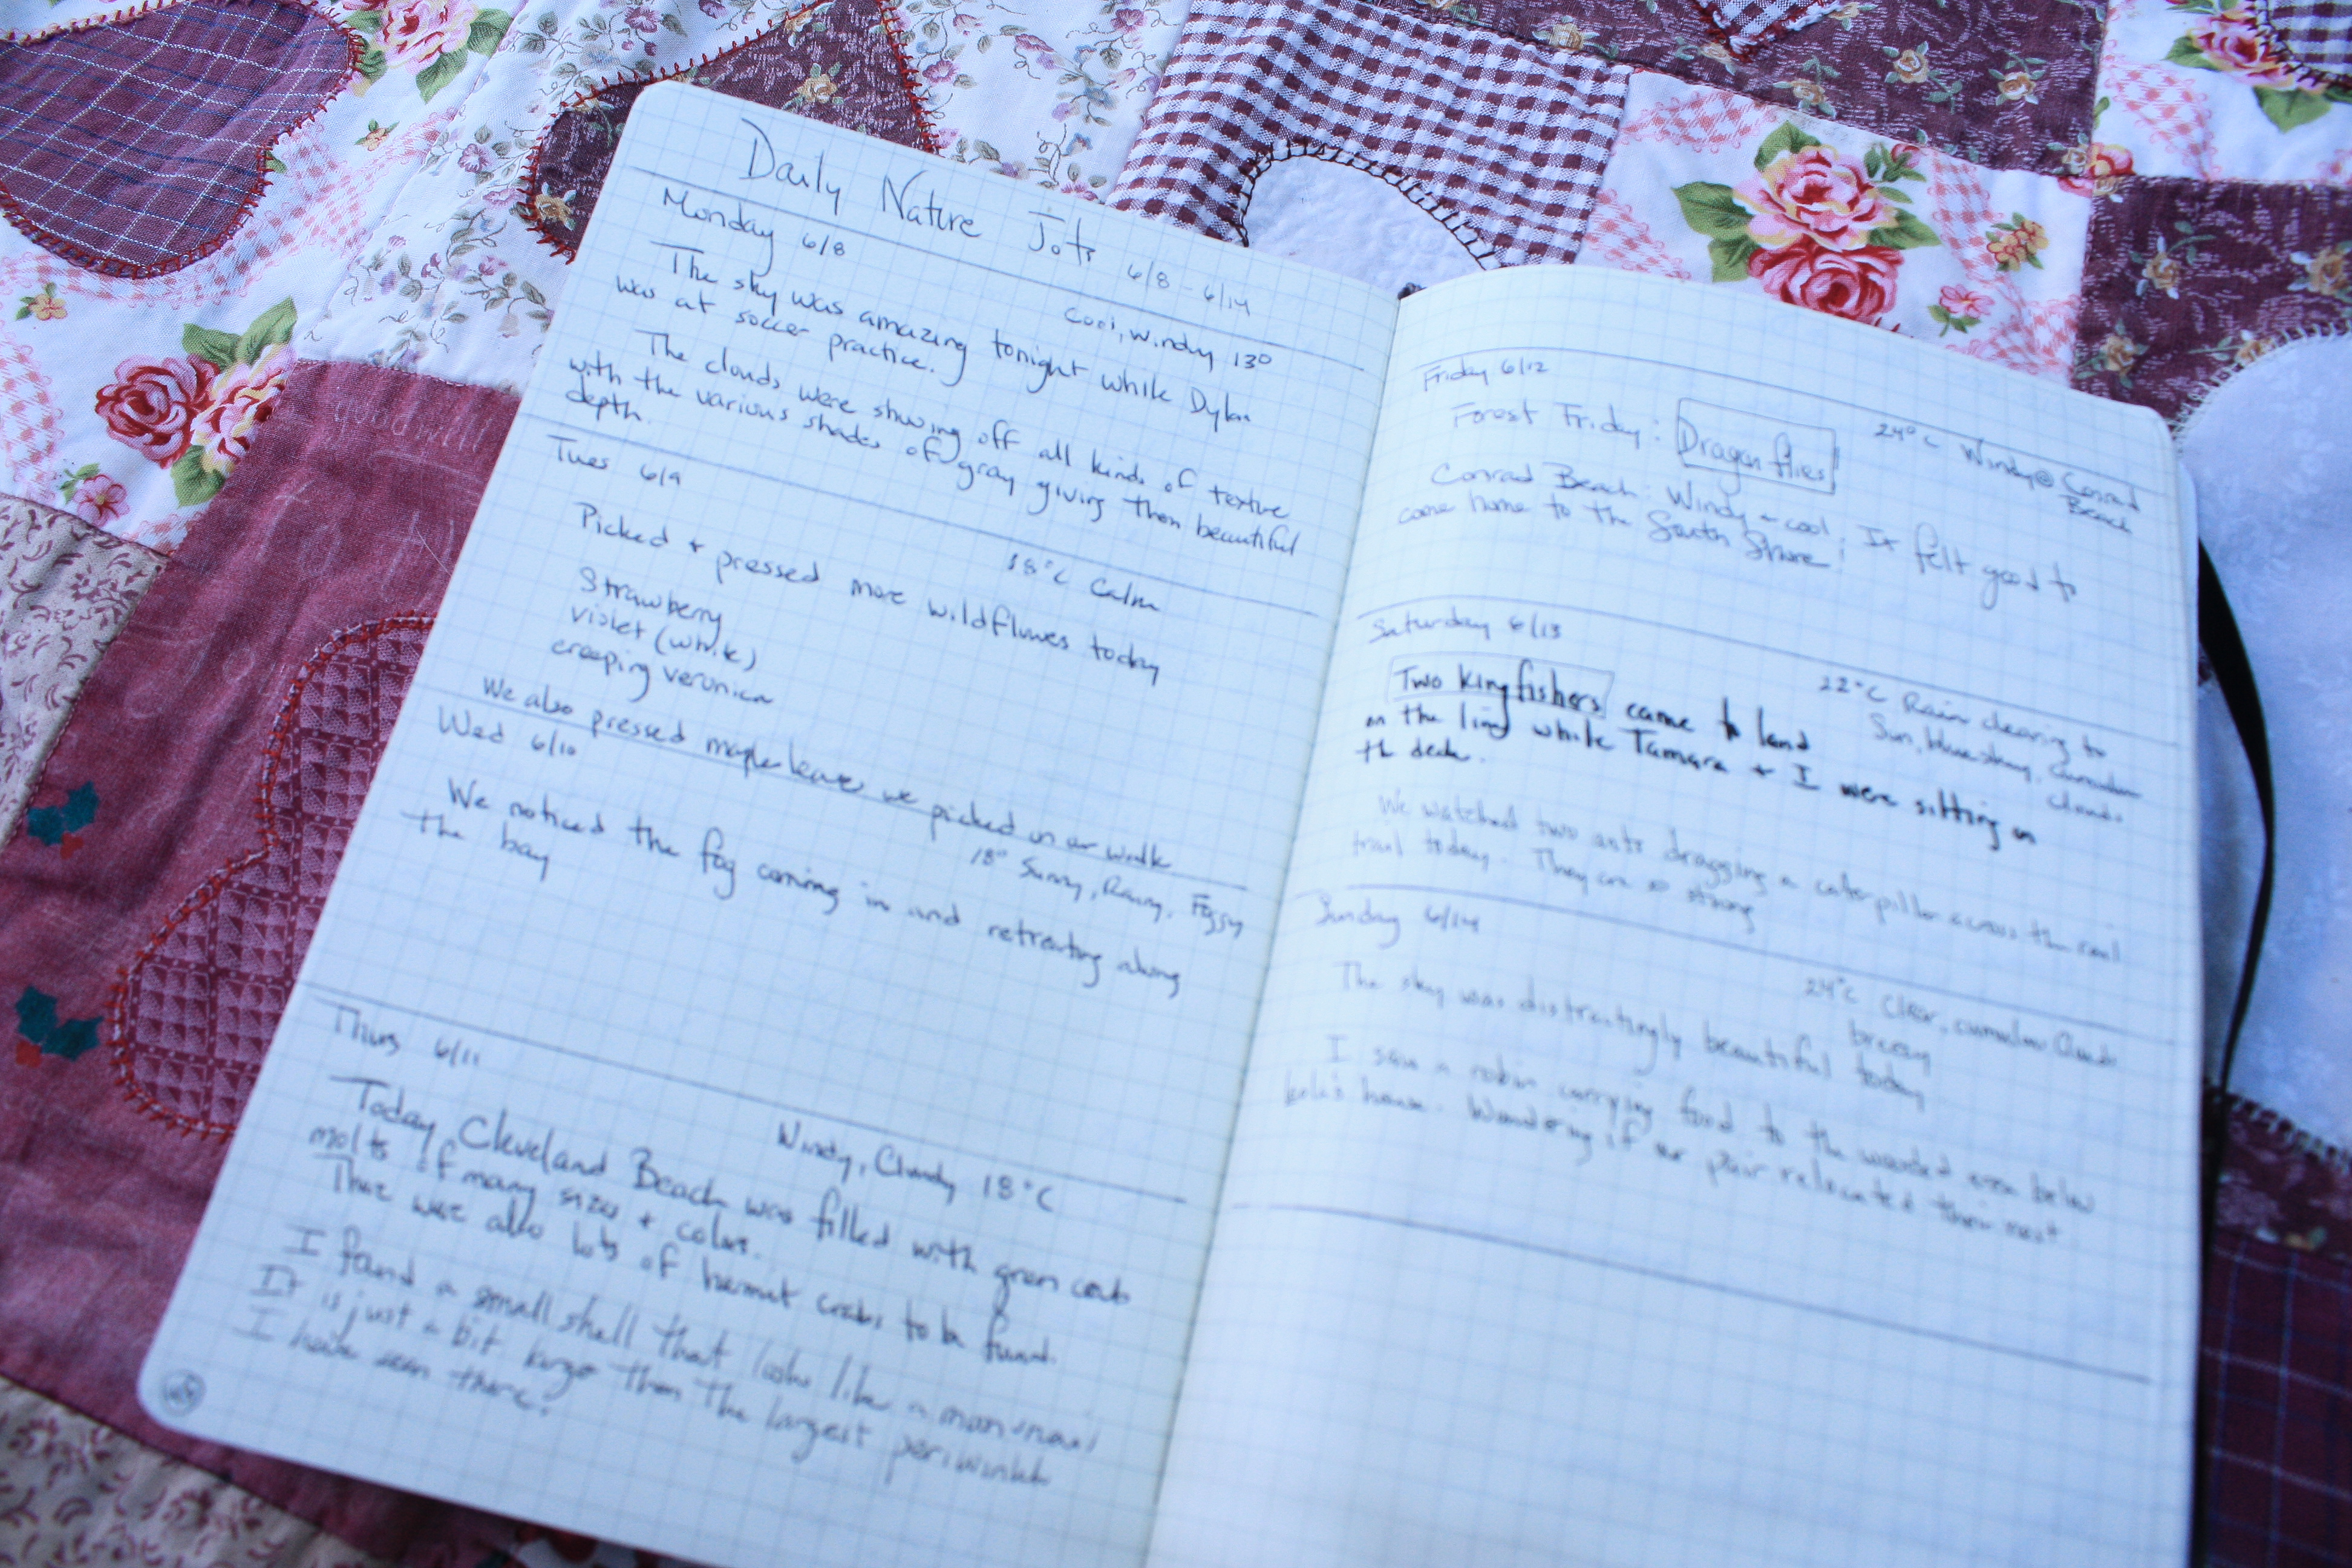 Daily Nature Jots 6/8 - 6/14
Monday 6/8
Cool, Windy 13°
The sky was amazing tonight while Dylan
was at soccer practice.
The clouds were showing off all kinds of texture
with the various shades of gray giving them beautiful
depth.
Tues 6/9
18°C Calm
Picked + pressed more wildflowers today
Strawberry
violet (white)
creeping veronica
We also pressed maple leaves we picked on our walk
Wed 6/10
18° Sunny, Rainy, Foggy
We noticed the fog coming in and retreating along
the bay
Thurs 6/11
Windy, Cloudy 18°C
Today Cleveland Beach was filled with green crab
molts of many sizes + colors.
There were also lots of hermit crabs to be found.
I found a small shell that looks like a moon snail
It is just a bit larger than the largest periwinkle
I have seen there!
Friday 6/12
24°C Windy @ Conrad
Beach
Forest Friday: Dragonflies
Conrad Beach: Windy + cool. It felt good to
come home to the South Shore!
Saturday 6/13
22°C Rain clearing to
Sun, blue sky, cumulus
clouds
Two kingfishers came to land
on the line while Tamara + I were sitting on
the deck.
We watched two ants dragging a caterpillar across the rail
trail today. They are so strong
Sunday 6/14
24°C Clear, cumulus clouds
breezy
The sky was distractingly beautiful today
I saw a robin carrying food to the wooded area below
house. Wondering if our pair relocated their nest